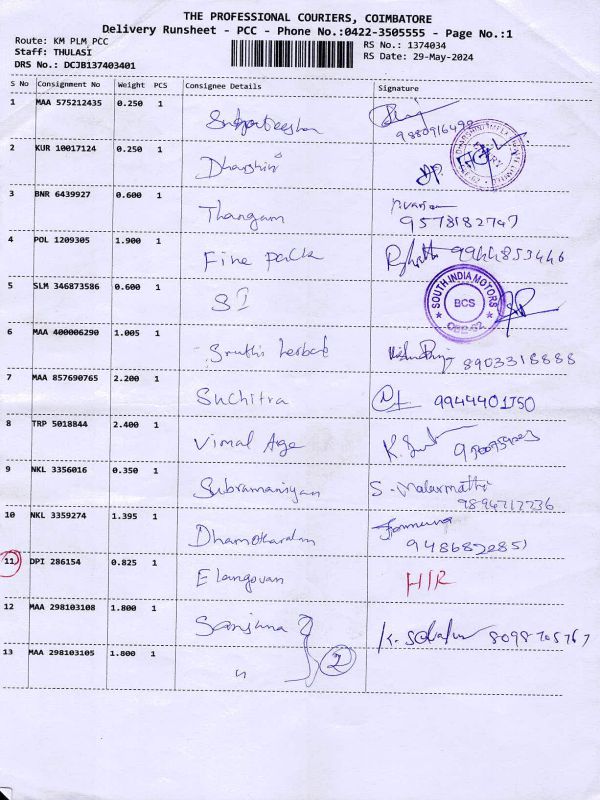 THE PROFESSIONAL COURIERS, COIMBATORE
Delivery Runsheet - PCC - Phone No.:0422-3505555 - Page No.:1
Route: KM PLM PCC
Staff: THULASI
DRS No.: DCJB137403401
RS No.: 1374034
RS Date: 29-May-2024
S No Consignment No Weight PCS Consignee Details Signature
1 MAA 575212435 0.250 1
2 KUR 10017124 0.250 1 Dharshini
3 BNR 6439927 0.600 1 Thangam
9578182747
4 POL 1209305 1.900 1 Fine pack 9944853446
5 SLM 346873586 0.600 1 SI
SOUTH INDIA MOTORS
BCS
6 MAA 400006290 1.005 1 8903318888
7 MAA 857690765 2.200 1 Suchitra 9944401750
8 TRP 5018844 2.400 1 Vimal Age
9 NKL 3356016 0.350 1 Subramaniyan S. Malarmathi
10 NKL 3359274 1.395 1
11 DPI 286154 0.825 1 Elangovan
12 MAA 298103108 1.800 1 Sanjana
13 MAA 298103105 1.800 1 " 2